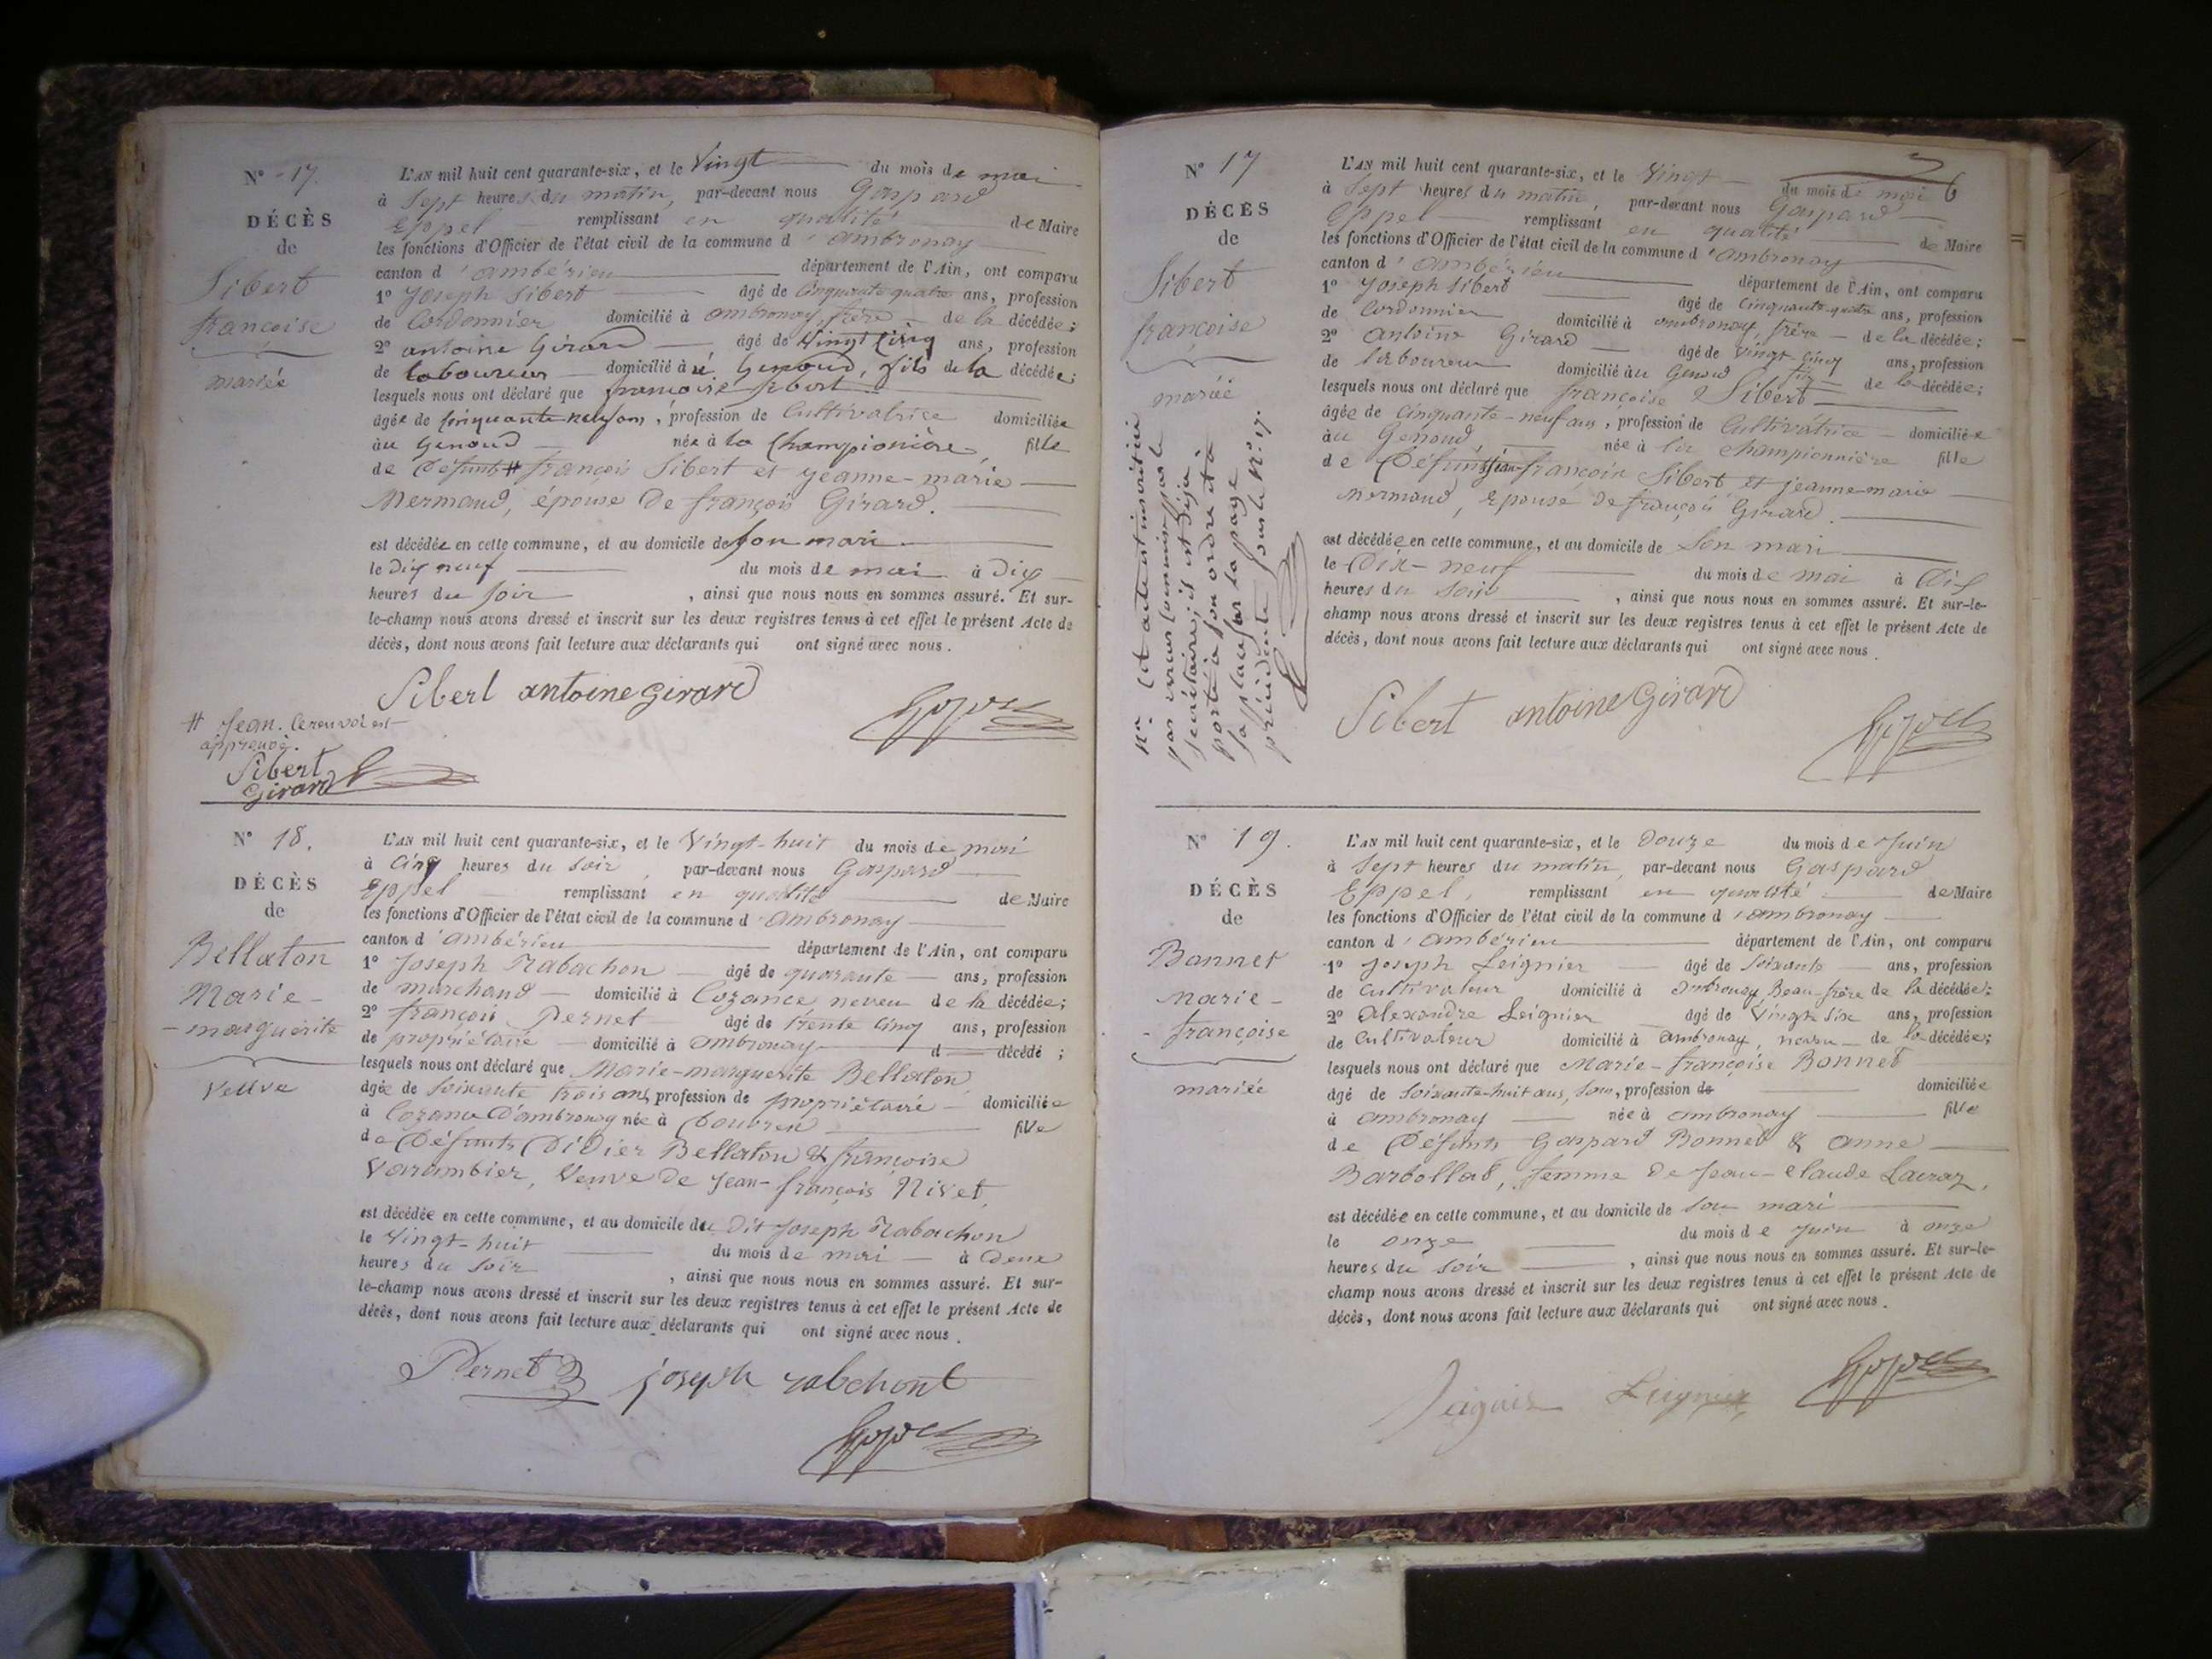 N° 17.
DÉCÈS
de
Sibert
françoise
mariée
L'AN mil huit cent quarante-six, et le Vingt du mois de mai
à Sept heures du matin, par-devant nous Gaspard
Eppel remplissant en qualité de Maire
les fonctions d'Officier de l'état civil de la commune d'ambronay
canton d'ambérieu département de l'Ain, ont comparu
1° Joseph Sibert âgé de Cinquante quatre ans, profession
de Cordonnier domicilié à ambronay, frère de la décédée;
2° antoine Girard âgé de Vingt Cinq ans, profession
de laboureur domicilié àu Genoud, fils de la décédée;
lesquels nous ont déclaré que françoise Sibert
âgée de Cinquante neuf ans, profession de Cultivatrice domiciliée
àu Genoud née à la Championière fille
de Défunts # françois Sibert et jeanne-marie
Mermand, épouse de françois Girard.
est décédée en cette commune, et au domicile de son mari
le dix neuf du mois de mai à dix
heures du soir, ainsi que nous nous en sommes assuré. Et sur-
le-champ nous avons dressé et inscrit sur les deux registres tenus à cet effet le présent Acte de
décès, dont nous avons fait lecture aux déclarants qui ont signé avec nous.
Sibert antoine Girard
# Jean. Ce renvoi est
approuvé.
Sibert
Girard
N° 18.
DÉCÈS
de
Bellaton
Marie-
-marguerite
Veuve
L'AN mil huit cent quarante-six, et le Vingt-huit du mois de mai
à Cinq heures du soir, par-devant nous Gaspard
Eppel remplissant en qualité de Maire
les fonctions d'Officier de l'état civil de la commune d'ambronay
canton d'ambérieu département de l'Ain, ont comparu
1° Joseph Rabachon âgé de quarante ans, profession
de marchand domicilié à Cozance neveu de la décédée;
2° françois Pernet âgé de trente Cinq ans, profession
de propriétaire domicilié à ambronay d décédé;
lesquels nous ont déclaré que Marie-marguerite Bellaton
âgée de soixante trois ans, profession de propriétaire domiciliée
à Cozance d'ambronay née à Douvren fille
de Défunts Didier Bellaton & françoise
Varambier, Veuve de Jean-françois Nivet
est décédée en cette commune, et au domicile du dit Joseph Rabachon
le Vingt-huit du mois de mai à Deux
heures du soir, ainsi que nous nous en sommes assuré. Et sur-
le-champ nous avons dressé et inscrit sur les deux registres tenus à cet effet le présent Acte de
décès, dont nous avons fait lecture aux déclarants qui ont signé avec nous.
Pernet joseph rabchont
N° 17
DÉCÈS
de
Sibert
françoise
mariée
Na Cet acte est inscrit ici
par erreur commise par le
secrétaire, il est déjà
porté à son ordre et à
sa place sur la page
précédente sous le N° 17.
L'AN mil huit cent quarante-six, et le Vingt du mois de mai
à Sept heures du matin, par-devant nous Gaspard
Eppel remplissant en qualité de Maire
les fonctions d'Officier de l'état civil de la commune d'ambronay
canton d'ambérieu département de l'Ain, ont comparu
1° Joseph Sibert âgé de Cinquante-quatre ans, profession
de Cordonnier domicilié à ambronay, frère de la décédée;
2° antoine Girard âgé de Vingt Cinq ans, profession
de laboureur domicilié àu Genoud fils de la décédée;
lesquels nous ont déclaré que françoise Sibert
âgée de Cinquante-neuf ans, profession de Cultivatrice domiciliée
àu Genoud, née à la Championnière fille
de Défunts jean-françois Sibert et jeanne-marie
mermand, Epouse de françois Girard.
est décédée en cette commune, et au domicile de Son mari
le Dix-neuf du mois de mai à Dix
heures du soir, ainsi que nous nous en sommes assuré. Et sur-le-
champ nous avons dressé et inscrit sur les deux registres tenus à cet effet le présent Acte de
décès, dont nous avons fait lecture aux déclarants qui ont signé avec nous.
Sibert antoine Girard
N° 19.
DÉCÈS
de
Bonnet
Marie-
-françoise
mariée
L'AN mil huit cent quarante-six, et le Douze du mois de Juin
à Sept heures du matin par-devant nous Gaspard
Eppel, remplissant en qualité de Maire
les fonctions d'Officier de l'état civil de la commune d'ambronay
canton d'ambérieu département de l'Ain, ont comparu
1° Joseph Leignier âgé de Soixante ans, profession
de Cultivateur domicilié à ambronay, Beau-frère de la décédée;
2° Alexandre Leignier âgé de Vingt Six ans, profession
de Cultivateur domicilié à ambronay, neveu de la décédée;
lesquels nous ont déclaré que Marie-françoise Bonnet
âgé de Soixante-huit ans, Sans, profession de domiciliée
à ambronay née à ambronay fille
de Défunts Gaspard Bonnet & anne
Barbollat, femme de Jean-Claude Lacraz,
est décédée en cette commune, et au domicile de Son mari
le onze du mois de Juin à onze
heures du soir, ainsi que nous nous en sommes assuré. Et sur-le-
champ nous avons dressé et inscrit sur les deux registres tenus à cet effet le présent Acte de
décès, dont nous avons fait lecture aux déclarants qui ont signé avec nous.
Leignier